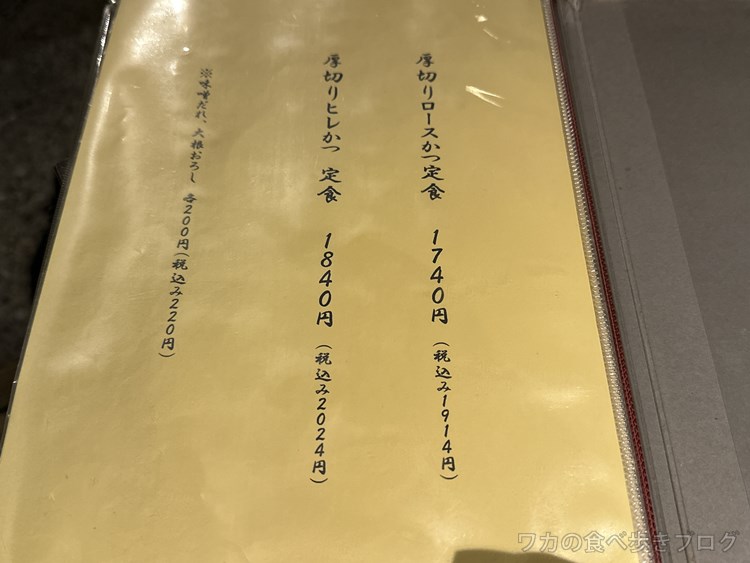 厚切りロースかつ定食 1740円（税込み1914円）
厚切りヒレかつ 定食 1840円（税込み2024円）
※味噌だれ、大根おろし 各200円（税込み220円）
ワカの食べ歩きブログ